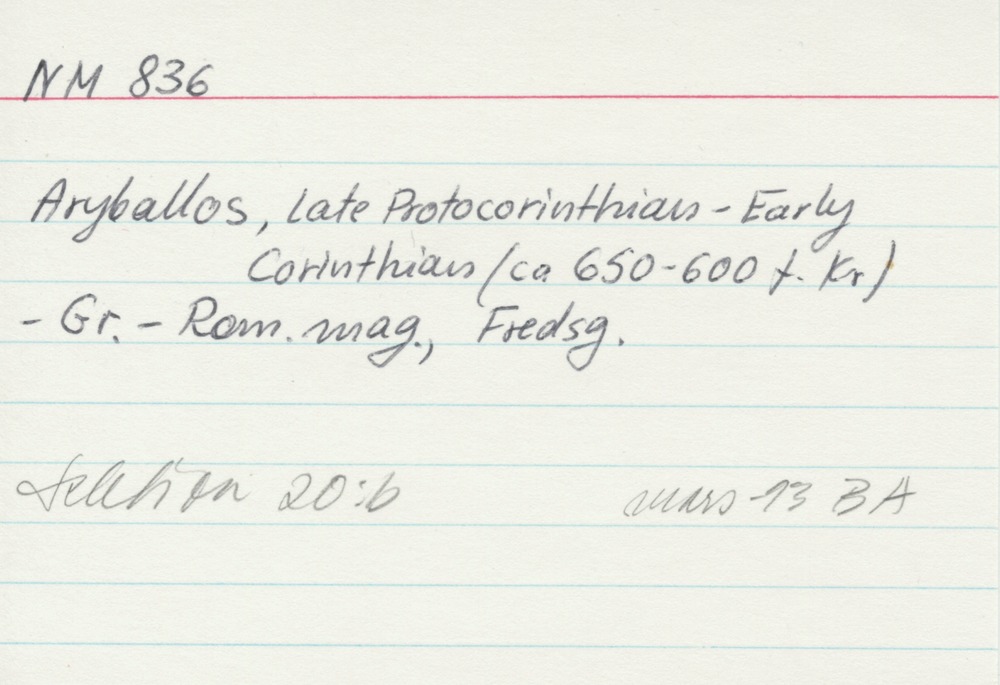 NM 836
Aryballos, Late Protocorinthian - Early
Corinthian (ca 650-600 f. Kr)
- Gr. - Rom. mag., Fredsg.
Sektion 20:b
mars -13 BA